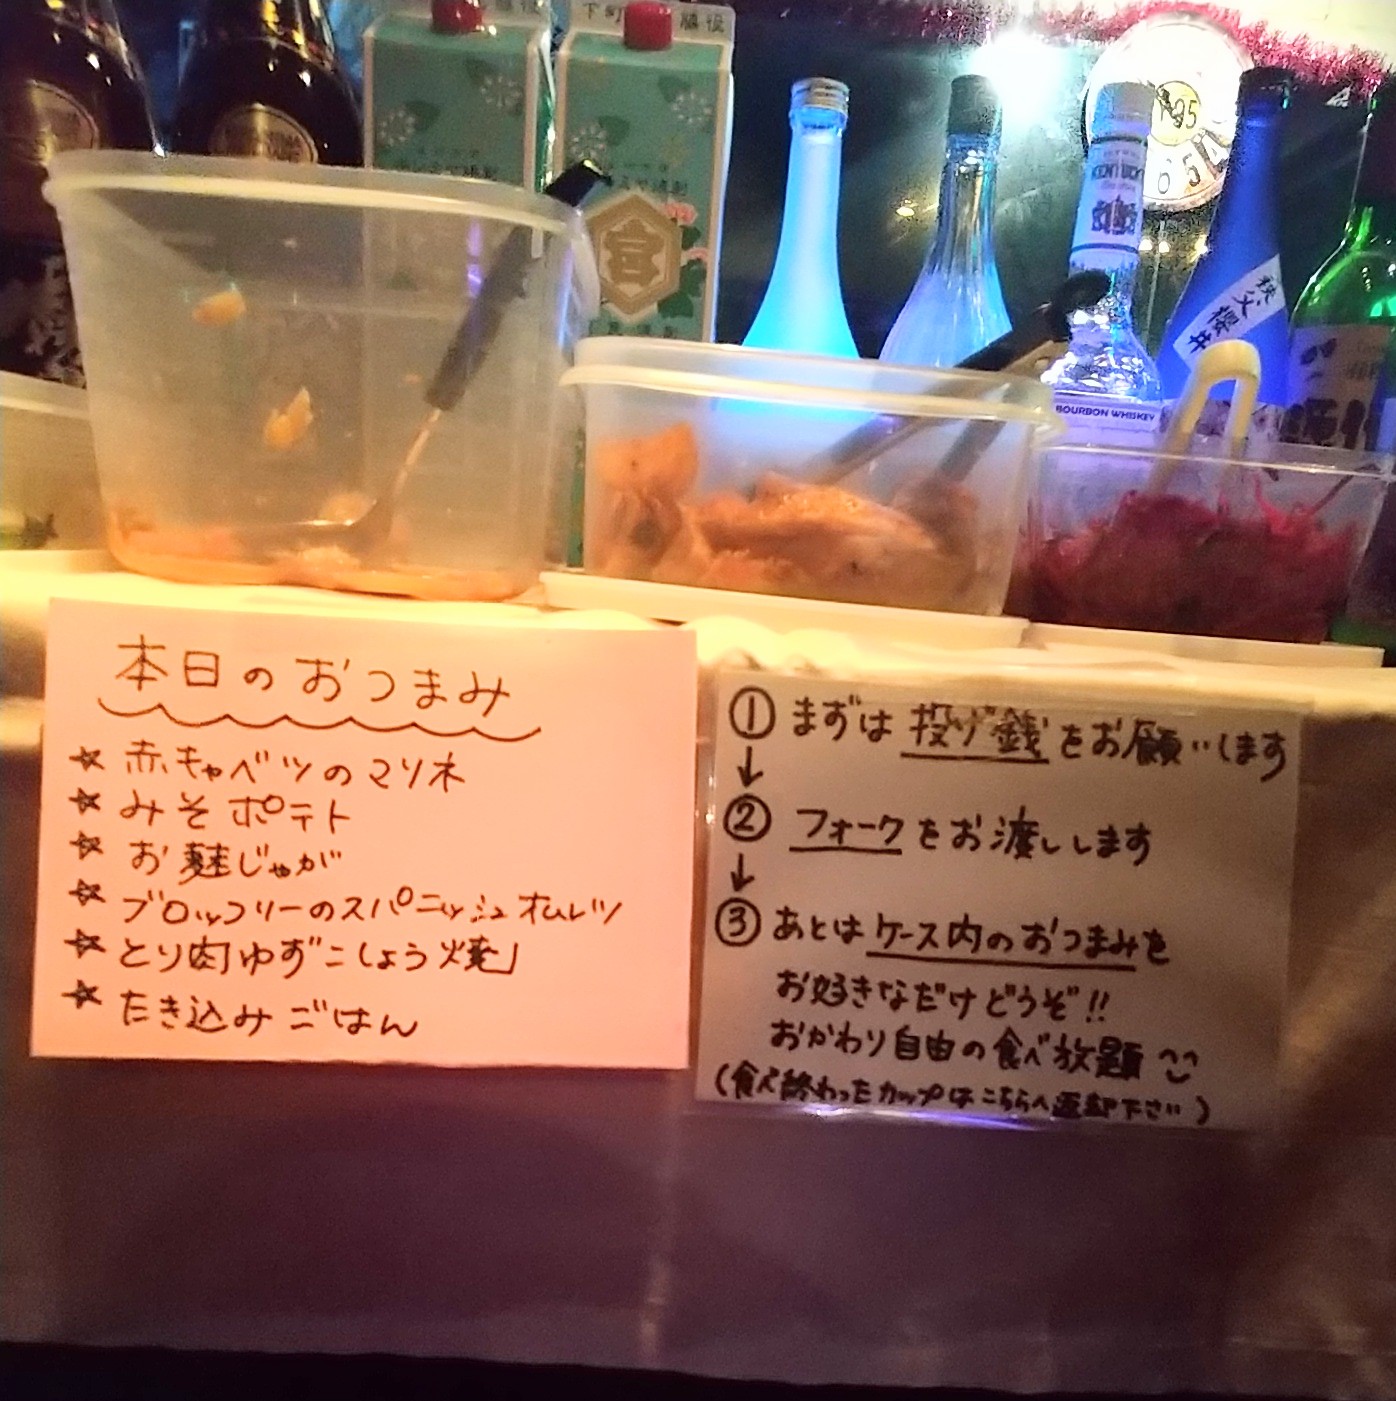 下町
宮
KENTUCKY
BOURBON WHISKEY
秩父櫻井
本日のおつまみ
☆ 赤キャベツのマリネ
☆ みそポテト
☆ お麩じゃが
☆ ブロッコリーのスパニッシュオムレツ
☆ とり肉ゆずこしょう焼
☆ たき込みごはん
① まずは投げ銭をお願いします
↓
② フォークをお渡しします
↓
③ あとはケース内のおつまみを
お好きなだけどうぞ!!
おかわり自由の食べ放題
(食べ終わったカップはこちらへ返却下さい)